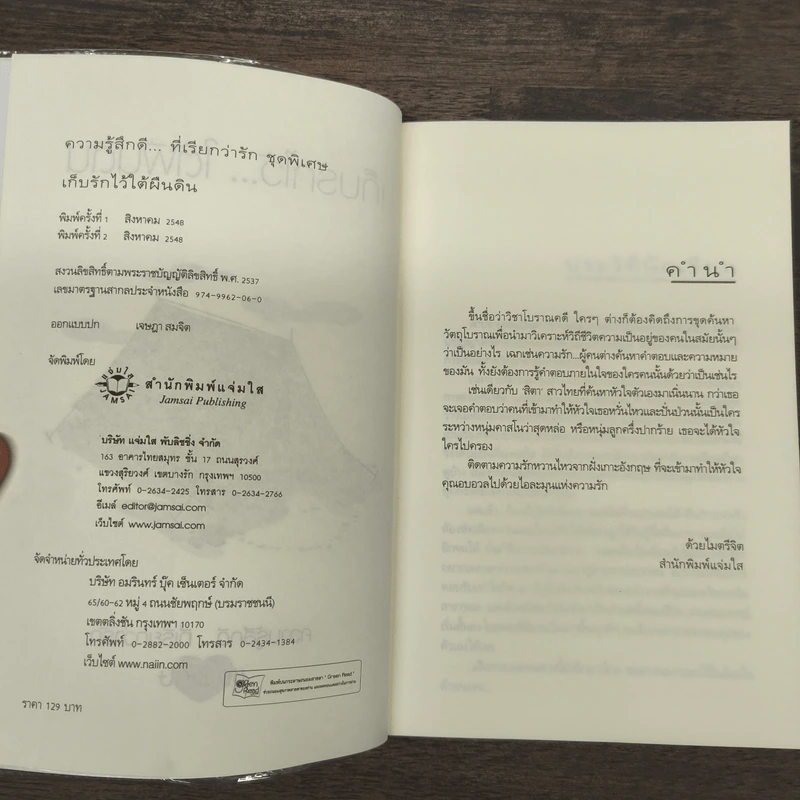 ความรู้สึกดี... ที่เรียกว่ารัก ชุดพิเศษ
เก็บรักไว้ใต้ผืนดิน
พิมพ์ครั้งที่ 1 สิงหาคม 2548
พิมพ์ครั้งที่ 2 สิงหาคม 2548
สงวนลิขสิทธิ์ตามพระราชบัญญัติลิขสิทธิ์ พ.ศ. 2537
เลขมาตรฐานสากลประจำหนังสือ 974-9962-06-0
ออกแบบปก เจษฎา สมจิต
จัดพิมพ์โดย
แจ่มใส
JAMSAI
สำนักพิมพ์แจ่มใส
Jamsai Publishing
บริษัท แจ่มใส พับลิชชิ่ง จำกัด
163 อาคารไทยสมุทร ชั้น 17 ถนนสุรวงศ์
แขวงสุริยวงศ์ เขตบางรัก กรุงเทพฯ 10500
โทรศัพท์ 0-2634-2425 โทรสาร 0-2634-2766
อีเมล์ editor@jamsai.com
เว็บไซต์ www.jamsai.com
จัดจำหน่ายทั่วประเทศโดย
บริษัท อมรินทร์ บุ๊ค เซ็นเตอร์ จำกัด
65/60-62 หมู่ 4 ถนนชัยพฤกษ์ (บรมราชชนนี)
เขตตลิ่งชัน กรุงเทพฯ 10170
โทรศัพท์ 0-2882-2000 โทรสาร 0-2434-1384
เว็บไซต์ www.naiin.com
Green Read
พิมพ์บนกระดาษถนอมสายตา "Green Read"
ราคา 129 บาท
คำนำ
ขึ้นชื่อว่าวิชาโบราณคดี ใครๆ ต่างก็ต้องคิดถึงการขุดค้นหา
วัตถุโบราณเพื่อนำมาวิเคราะห์วิถีชีวิตความเป็นอยู่ของคนในสมัยนั้นๆ
ว่าเป็นอย่างไร เฉกเช่นความรัก...ผู้คนต่างค้นหาคำตอบและความหมาย
ของมัน ทั้งยังต้องการรู้คำตอบภายในใจของใครคนนั้นด้วยว่าเป็นเช่นไร
เช่นเดียวกับ 'สิตา' สาวไทยที่ค้นหาหัวใจตัวเองมาเนิ่นนาน กว่าเธอ
จะเจอคำตอบว่าคนที่เข้ามาทำให้หัวใจเธอหวั่นไหวและปั่นป่วนนั้นเป็นใคร
ระหว่างหนุ่มคาสโนว่าสุดหล่อ หรือหนุ่มลูกครึ่งปากร้าย เธอจะได้หัวใจ
ใครไปครอง
ติดตามความรักหวานไหวจากฝั่งเกาะอังกฤษ ที่จะเข้ามาทำให้หัวใจ
คุณอบอวลไปด้วยไอละมุนแห่งความรัก
ด้วยไมตรีจิต
สำนักพิมพ์แจ่มใส